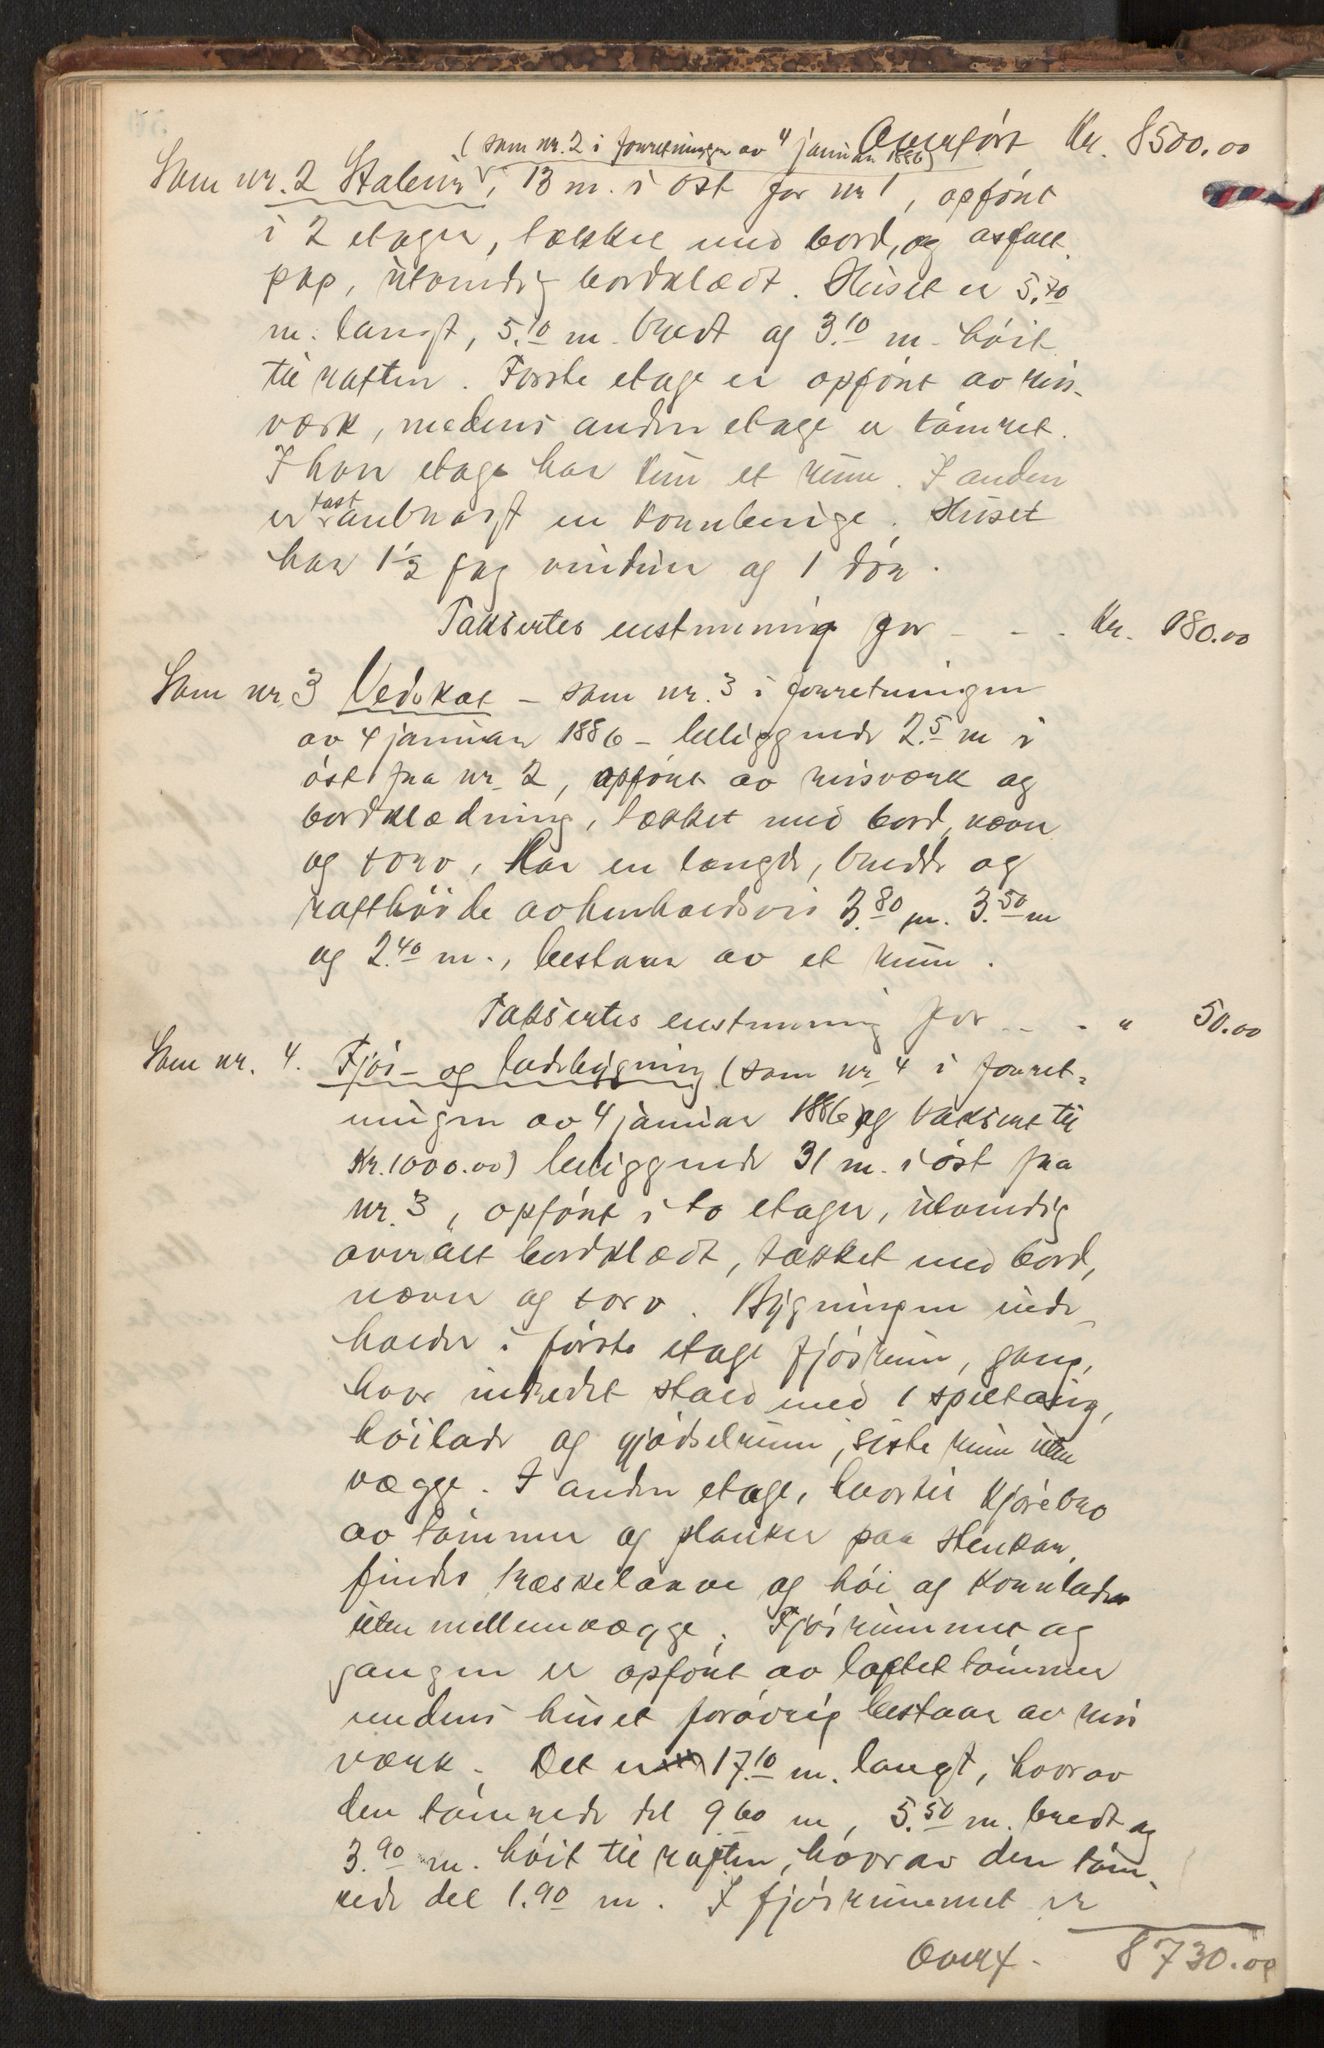 Overført Kr. 8500.00
(som nr. 2 i forretningen av 4 januar 1886)
Som nr. 2 Stabur, 13 m. i øst for nr 1, opført
i 2 etager, tækket med bord, og asfalt-
pap, utvendig bordklædt. Huset er 5.70
m. langt, 5.10 m. bredt og 3.10 m. høit
til raften. Første etage er opført av reis-
værk, medens anden etage er tømret.
I hver etage har kun et rum. I anden
er fast anbragt en kornbinge. Huset
har 1½ fag vinduer og 1 dør.
Taksertes enstemmig for - - - Kr. 180.00
Som nr. 3 Vedskot - som nr. 3 i forretningen
av 4 januar 1886 - beliggende 2.5 m i
øst fra nr. 2, opført av reisværk og
bordklædning, tækket med bord, næver
og torv. Har en længde, bredde og
rafthøide avhenholdsvis 3.80 m. 3.50 m
og 2.40 m., bestaar av et rum.
Taksertes enstemmig for - - - " 50.00
Som nr. 4. Fjøs- og ladebygning (som nr 4 i forret-
ningen av 4 januar 1886 og taksert til
Kr. 1000.00) beliggende 31 m. i øst fra
nr. 3, opført i to etager, utvendig
overalt bordklædt, tækket med bord,
næver og torv. Bygningen inde-
holder i første etage fjøsrum, gang,
hvor indredet stald med 1 spiltaug,
høilade og gjødselrum, siste rum uten
vægge. I anden etage, hvortil kjørebro
av tømmer og planker paa stenkar,
findes træskelaave og høi og kornlader
uten mellemvægge. Fjøsrummet og
gangen er opført av laftet tømmer
medens huset forøvrig bestaar av reis
værk. Det er 17.10 m. langt, hvorav
den tømrede del 9.60 m, 5.50 m. bredt og
3.90 m. høit til raften, hvorav den tøm-
rede del 1.90 m. I fjøsrummet er
Overf. 8730.00